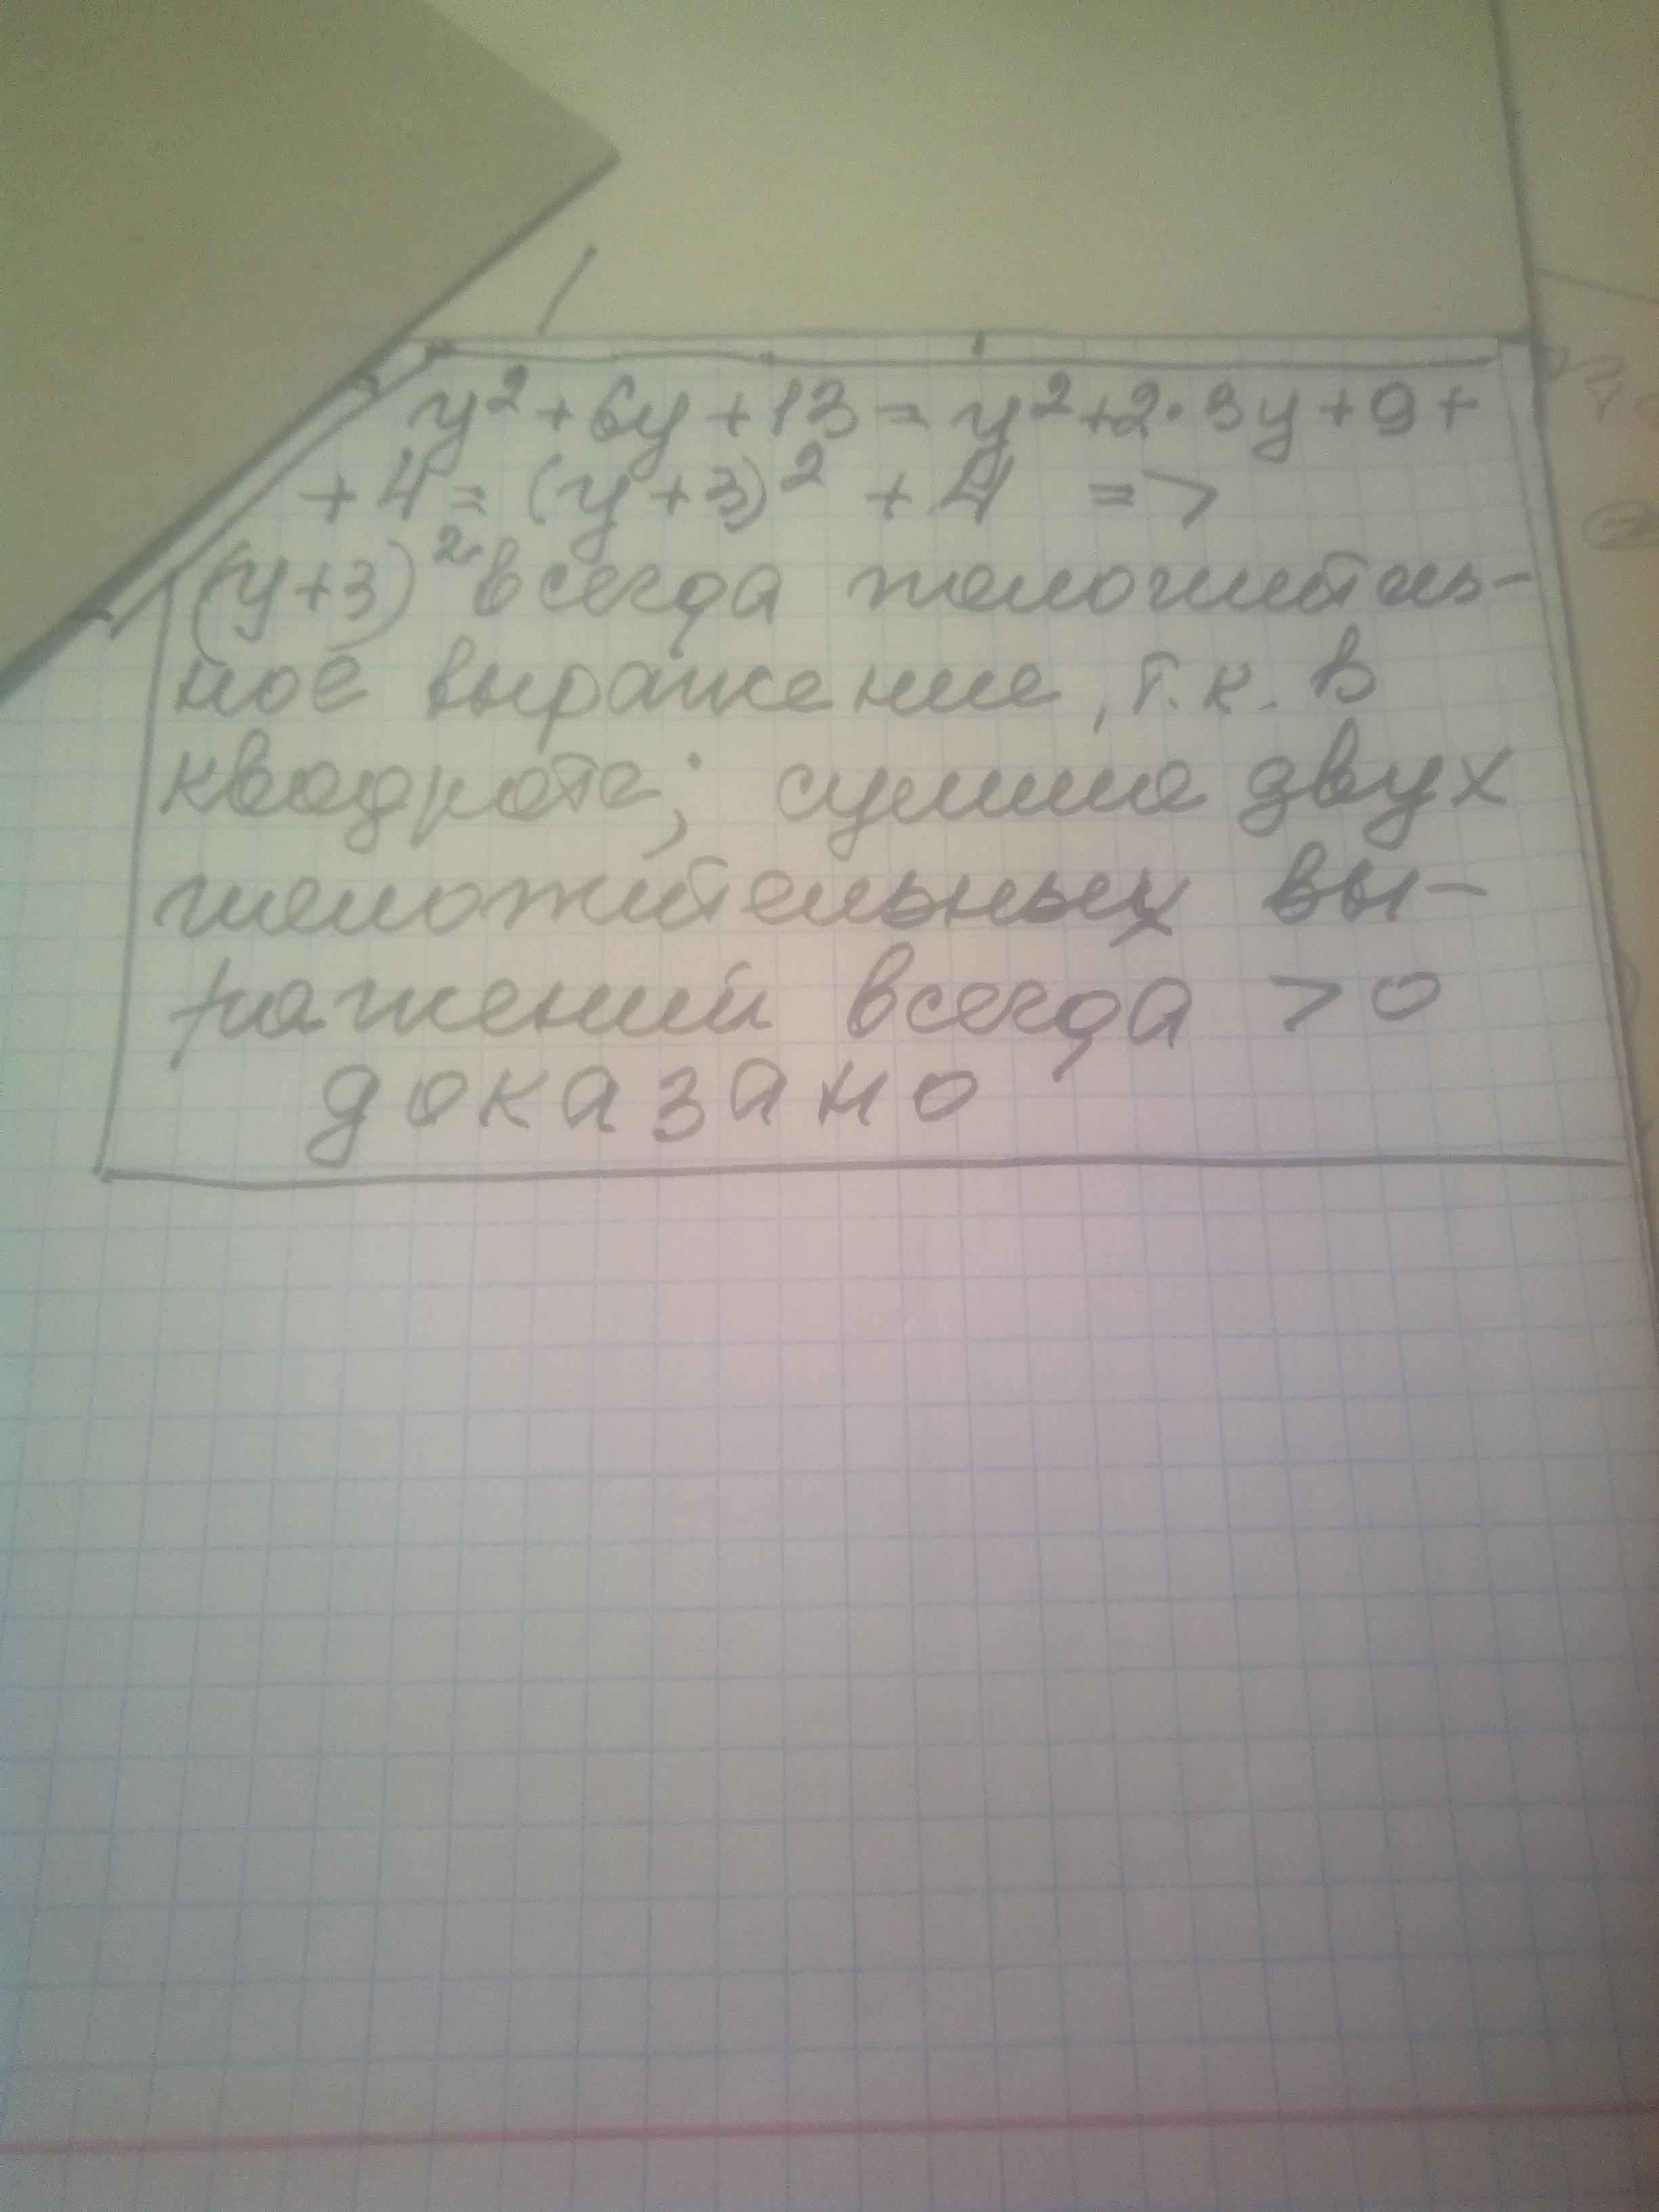 y² + 6y + 13 = y² + 2·3y + 9 +
+ 4 = (y + 3)² + 4 =>
(y+3)² всегда положитель-
ное выражение, т.к. в
квадрате; сумма двух
положительных вы-
ражений всегда > 0
доказано